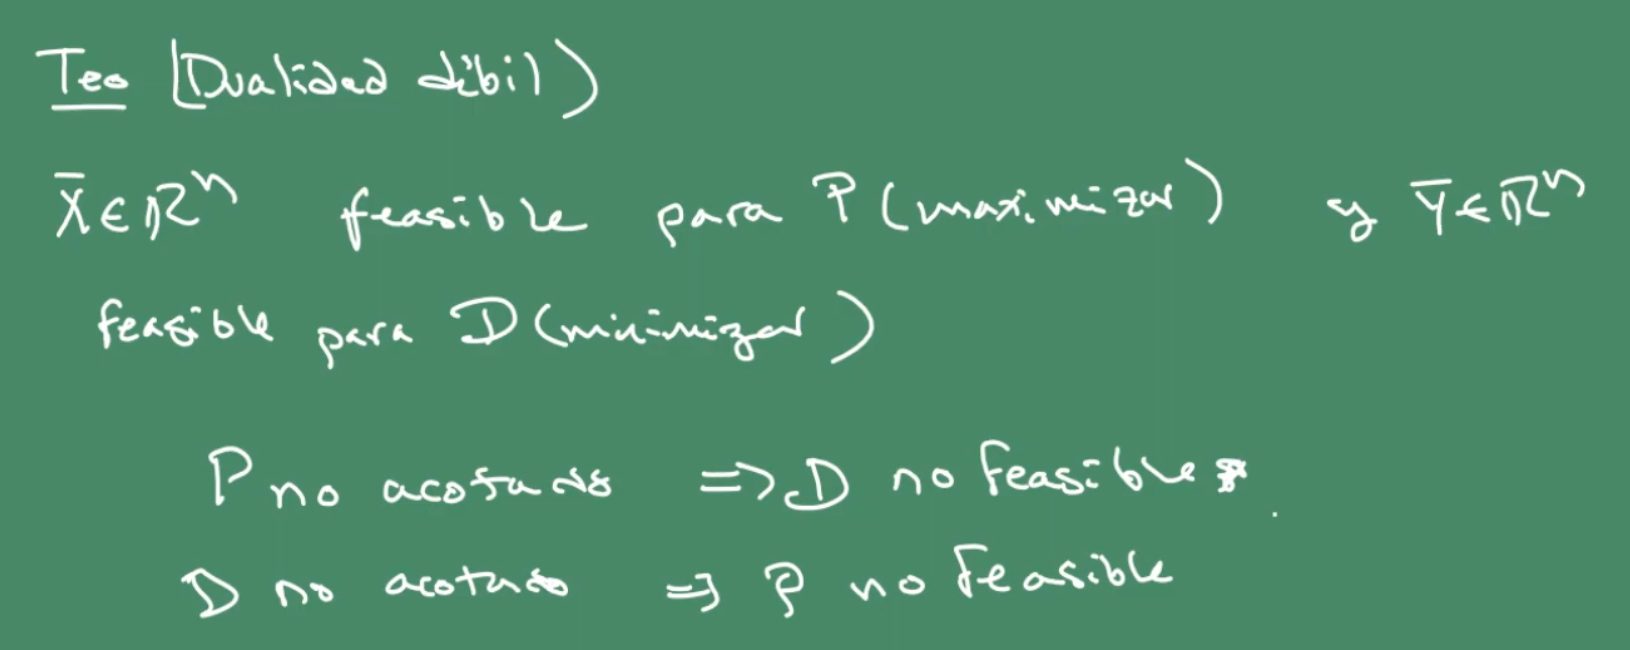 Teo (Dualidad débil)
X̄ ∈ ℝⁿ feasible para P (maximizar) y Ȳ ∈ ℝⁿ
feasible para D (minimizar)
P no acotado => D no feasible
D no acotado => P no feasible